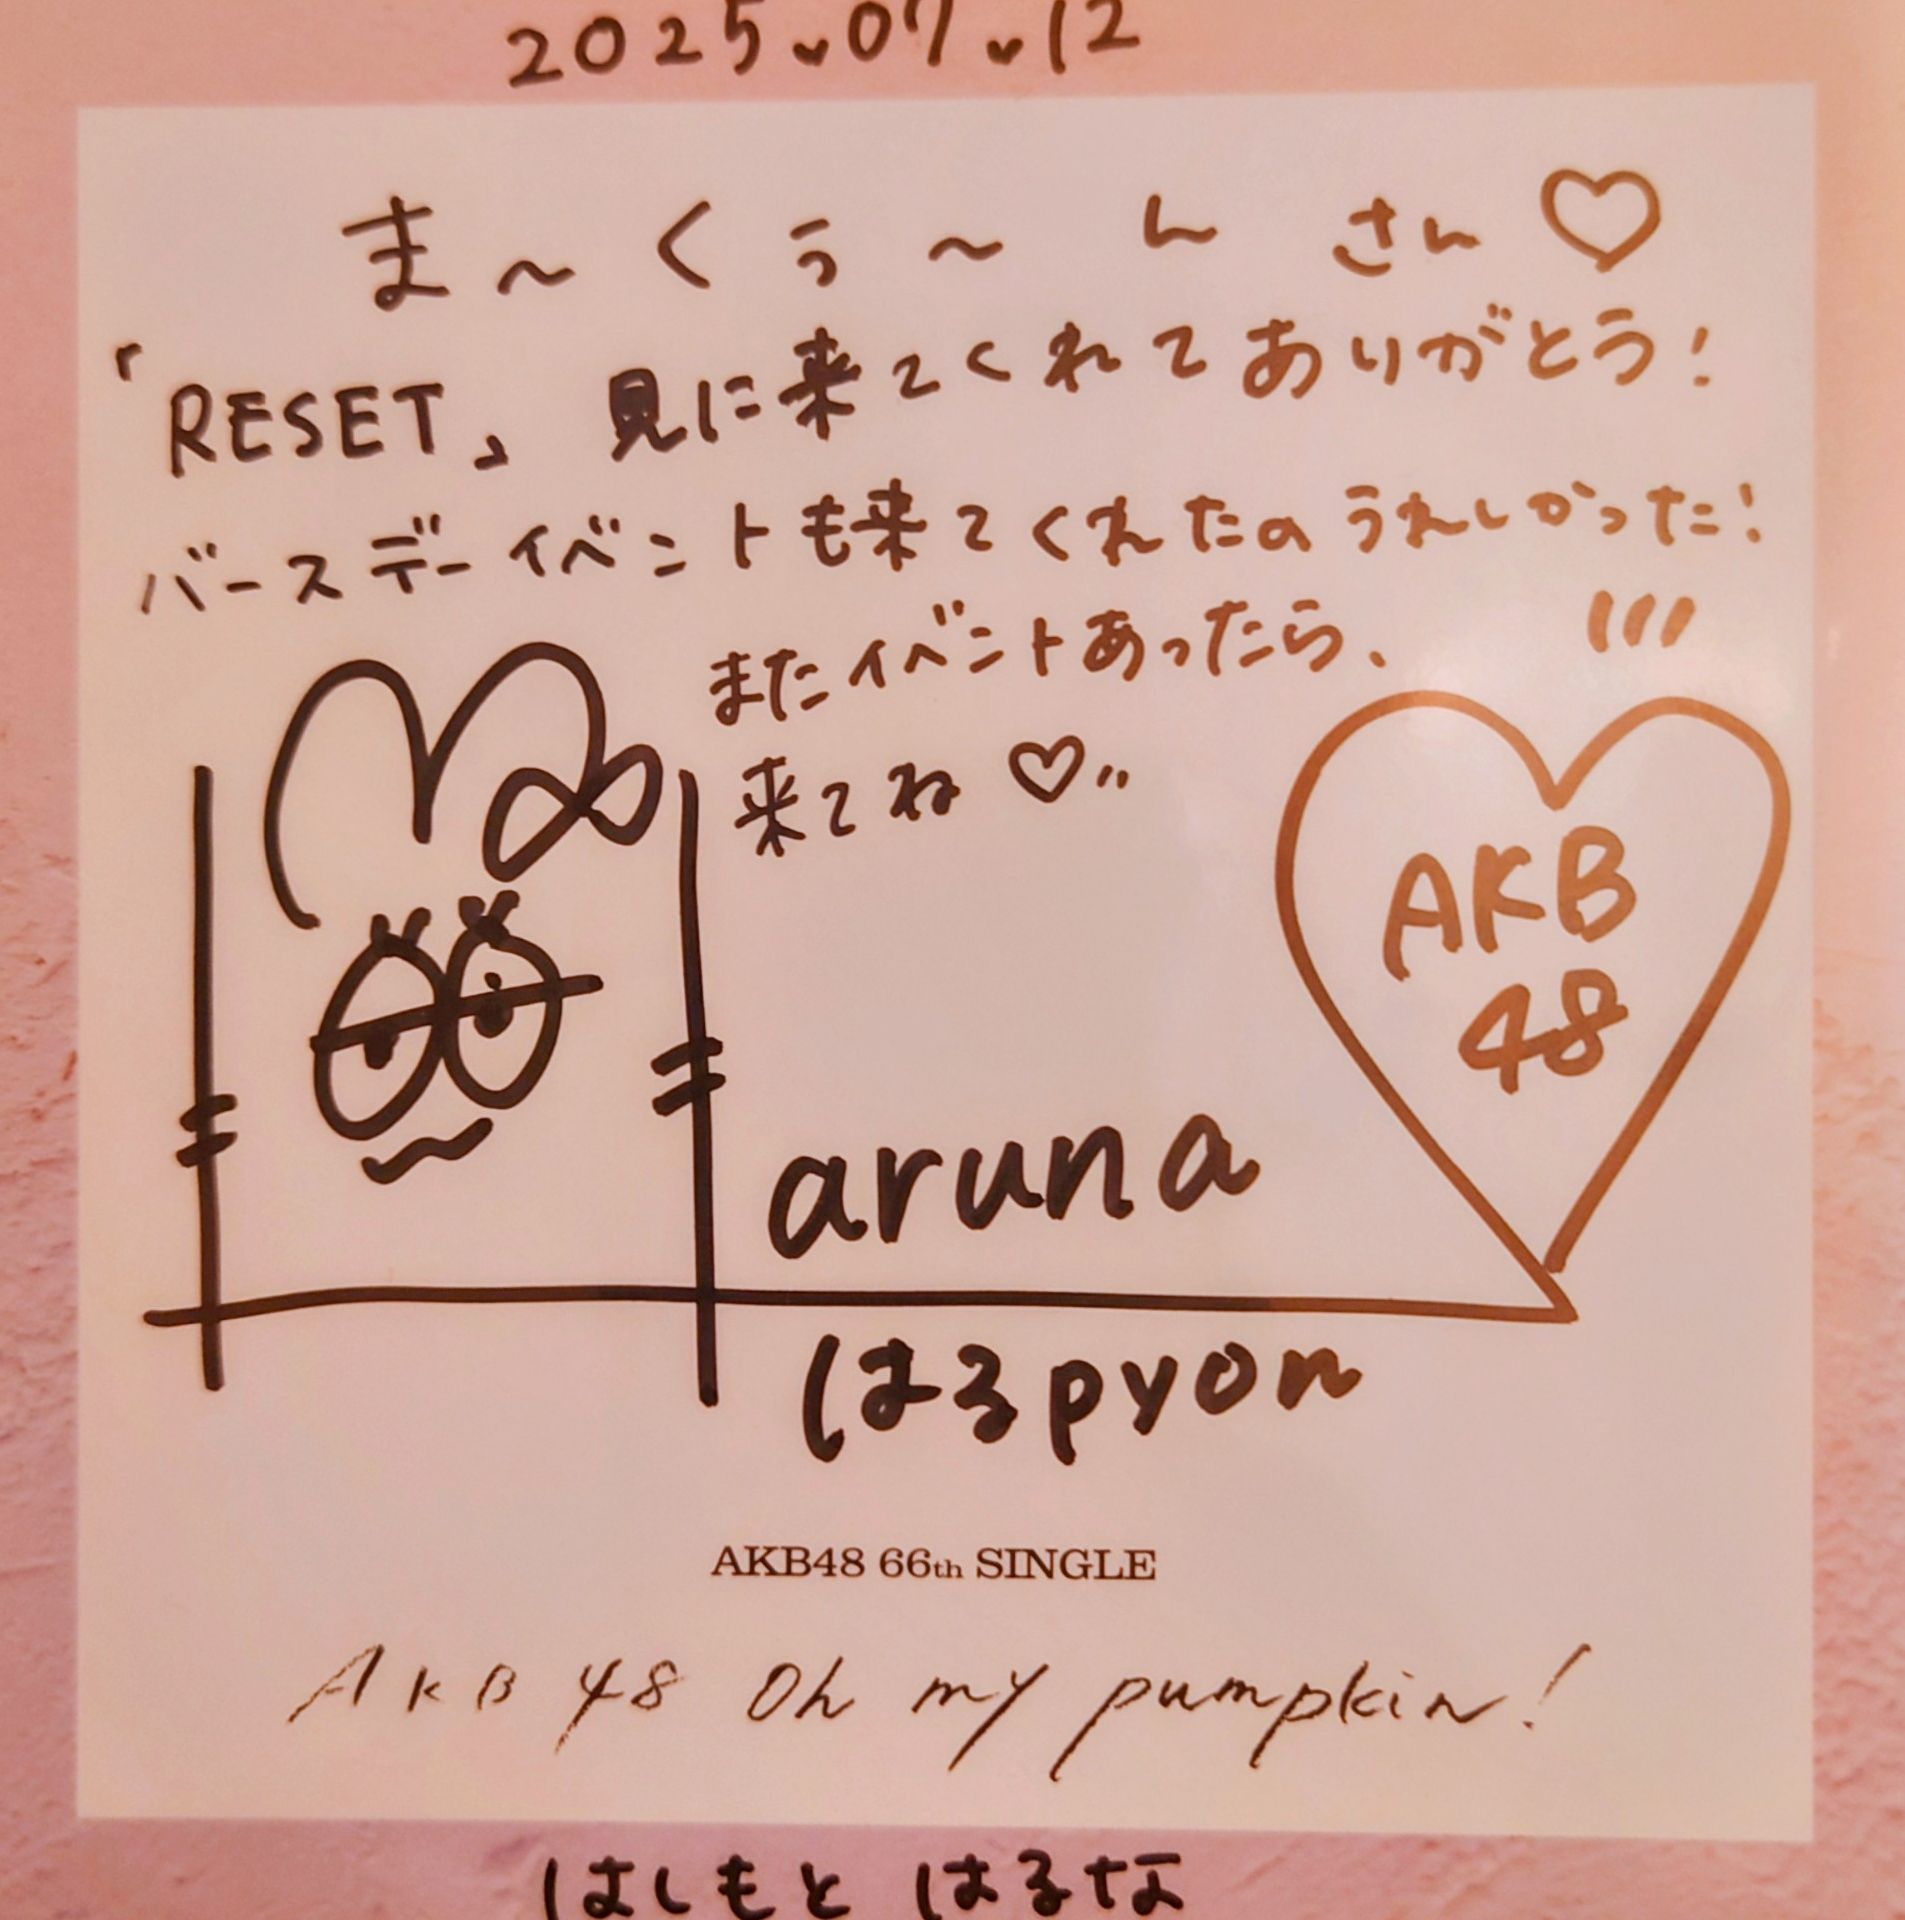 2025.07.12
ま〜くぅ〜んさん♡
「RESET」見に来てくれてありがとう!
バースデーイベントも来てくれたのうれしかった!
またイベントあったら、
来てね♡
AKB
48
aruna
はるpyon
AKB48 66th SINGLE
AKB48 Oh my pumpkin!
はしもと はるな